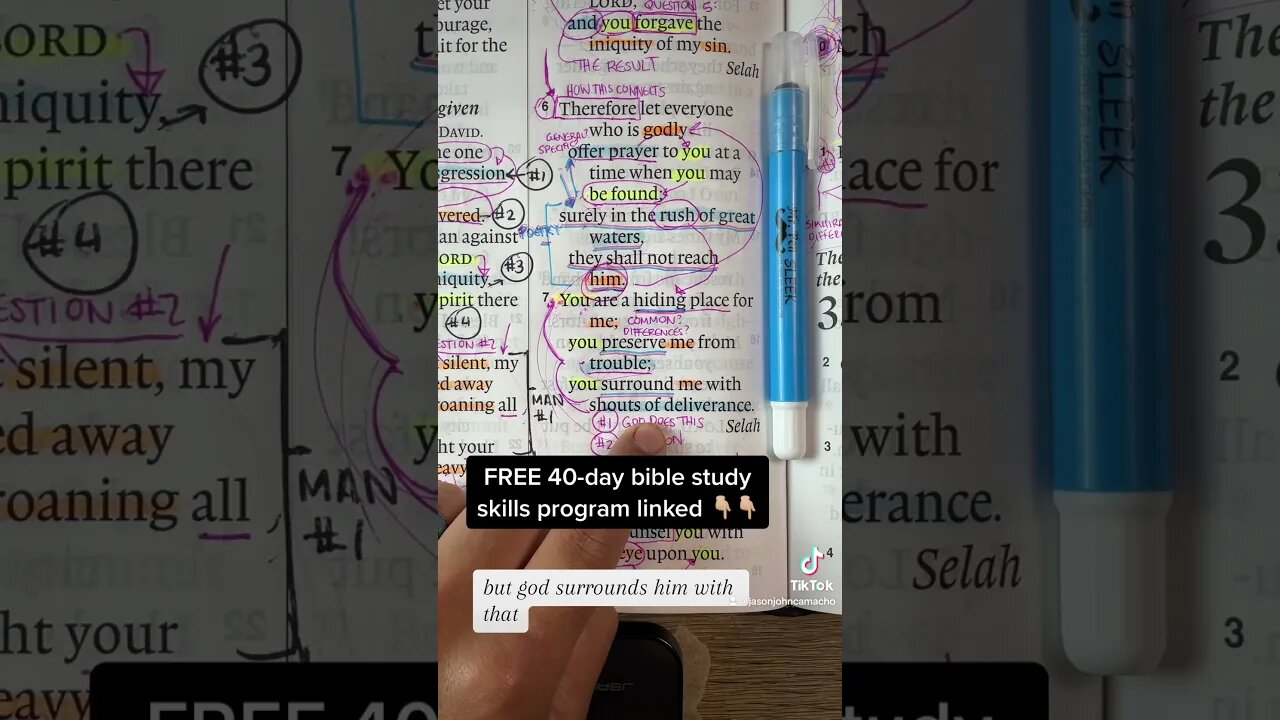 et your
ourage,
it for the
LORD
#3
niquity,
given
DAVID.
ne one
gression
#1
vered.
#2
an against
LORD
#3
niquity.
pirit there
#4
ESTION #2
silent, my
ed away
roaning all
MAN
#1
ht your
heavy
LORD, QUESTION 5:
and you forgave the
iniquity of my sin.
THE RESULT
Selah
HOW THIS CONNECTS
6 Therefore let everyone
who is godly
GENERAL
SPECIFIC
offer prayer to you at a
time when you may
be found;
surely in the rush of great
POETRY
waters,
they shall not reach
him.
7 You are a hiding place for
me; COMMON?
DIFFERENCES?
you preserve me from
trouble;
you surround me with
shouts of deliverance.
#1 GOD DOES THIS
Selah
#2
FREE 40-day bible study
skills program linked
unsel you with
eye upon you.
but god surrounds him with
that
TikTok
@jasonjohncamacho
SLEEK
The
the
ace for
rom
with
erance.
Selah
2
3
4